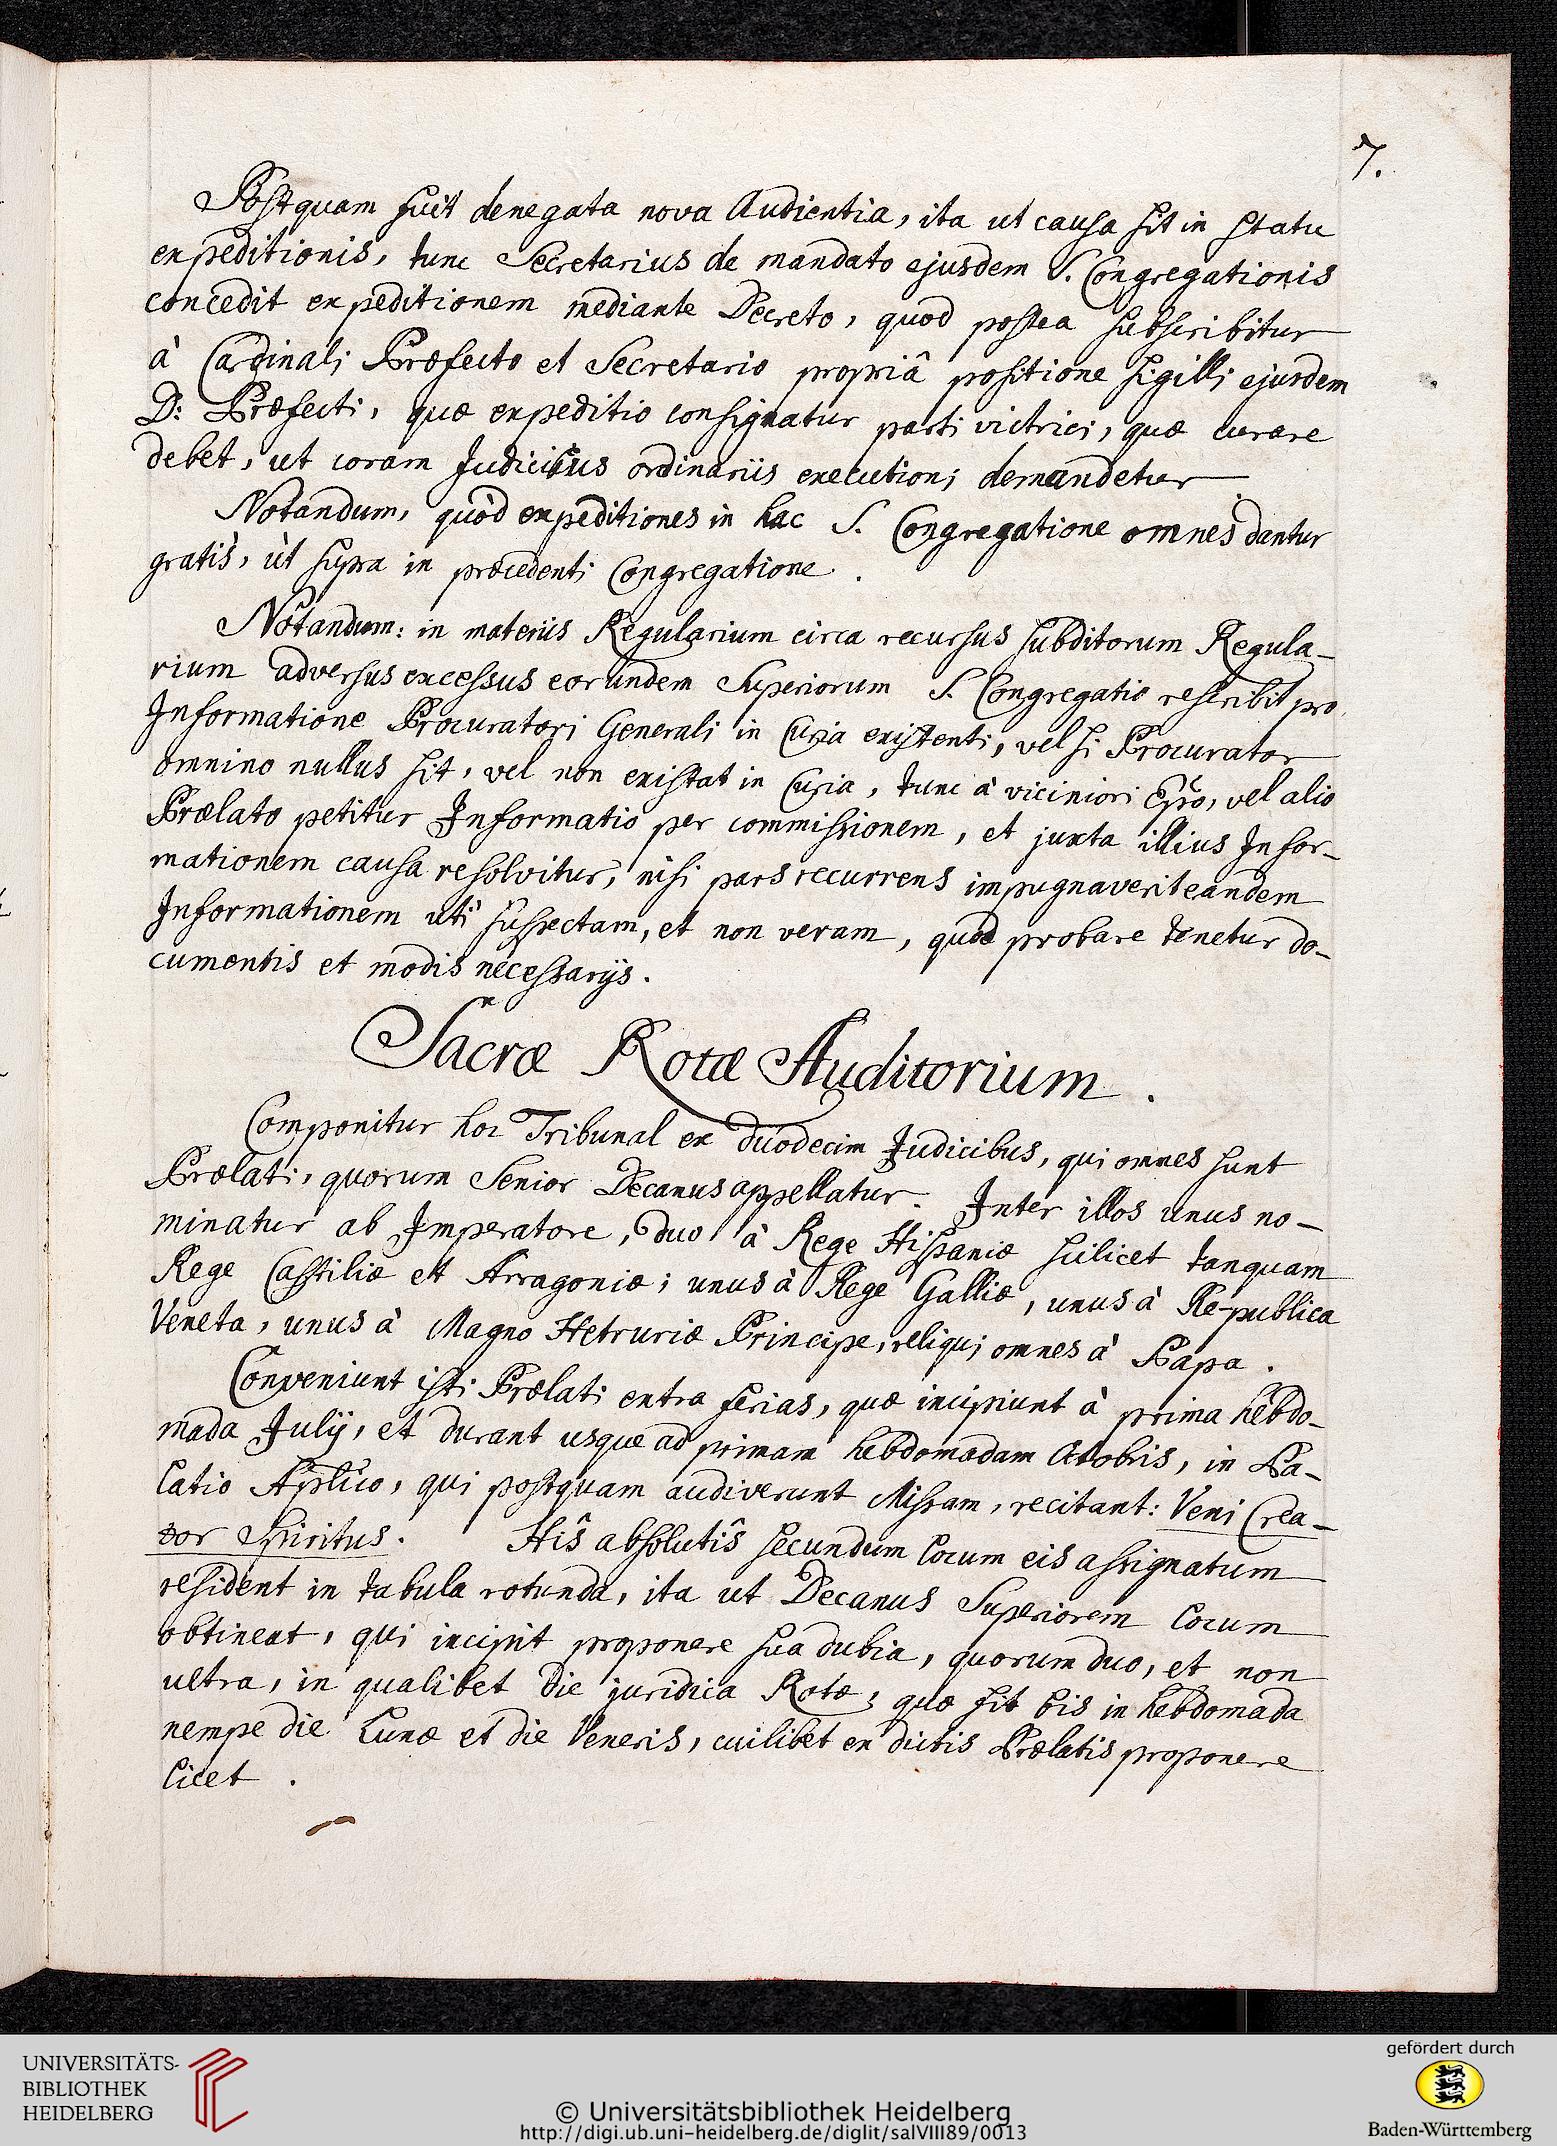 7.
Postquam fuit denegata nova Audientia, ita ut causa sit in statu
expeditionis, tunc Secretarius de mandato ejusdem S. Congregationis
concedit expeditionem mediante Decreto, quod postea subscribitur
à Cardinali Præfecto et Secretario propriâ positione sigilli ejusdem
D: Præfecti, quæ expeditio consignatur parti victrici, quæ curare
debet, ut coram Judicibus ordinariis executioni demandetur
Notandum, quòd expeditiones in hac S. Congregatione omnes dantur
gratis, ùt supra in præcedenti Congregatione.
Notandum: in materiis Regularium circa recursus subditorum Regula-
rium adversus excessus eorundem Superiorum S. Congregatio rescribit pro
Informatione Procuratori Generali in Curia existenti, vel si Procurator
omnino nullus sit, vel non existat in Curia, tunc à viciniori Epõ, vel alio
Prælato petitur Informatio per commissionem, et juxta illius Infor-
mationem causa resolvitur, nisi pars recurrens impugnaverit eandem
Informationem uti suspectam, et non veram, quod probare tenetur do-
cumentis et modis necessarijs.
Sacræ Rotæ Auditorium.
Componitur hoc Tribunal ex duodecim Judicibus, qui omnes sunt
Prælati, quorum Senior Decanus appellatur. Inter illos unus no-
minatur ab Imperatore, duo à Rege Hispaniæ scilicet tanquam
Rege Castiliæ et Arragoniæ; unus à Rege Galliæ, unus à Re-publica
Veneta, unus à Magno Hetruriæ Principe, reliqui omnes à Papa.
Conveniunt isti Prælati extra ferias, quæ incipiunt à prima hebdo-
mada Julij, et durant usque ad primam hebdomadam Octobris, in Pa-
latio Aplico, qui postquam audiverunt Missam, recitant: Veni Crea-
tor Spiritus. Hîs absolutîs secundum locum eis assignatum
resident in tabula rotunda, ita ut Decanus Superiorem locum
obtineat, qui incipit proponere sua dubia, quorum duo, et non
ultra, in qualibet die juridica Rotæ, quæ fit bis in hebdomada
nempe die Lunæ et die Veneris, cuilibet ex dictis Prælatis proponere
licet.
UNIVERSITÄTS-
BIBLIOTHEK
HEIDELBERG
© Universitätsbibliothek Heidelberg
http://digi.ub.uni-heidelberg.de/diglit/salVIII89/0013
gefördert durch
Baden-Württemberg